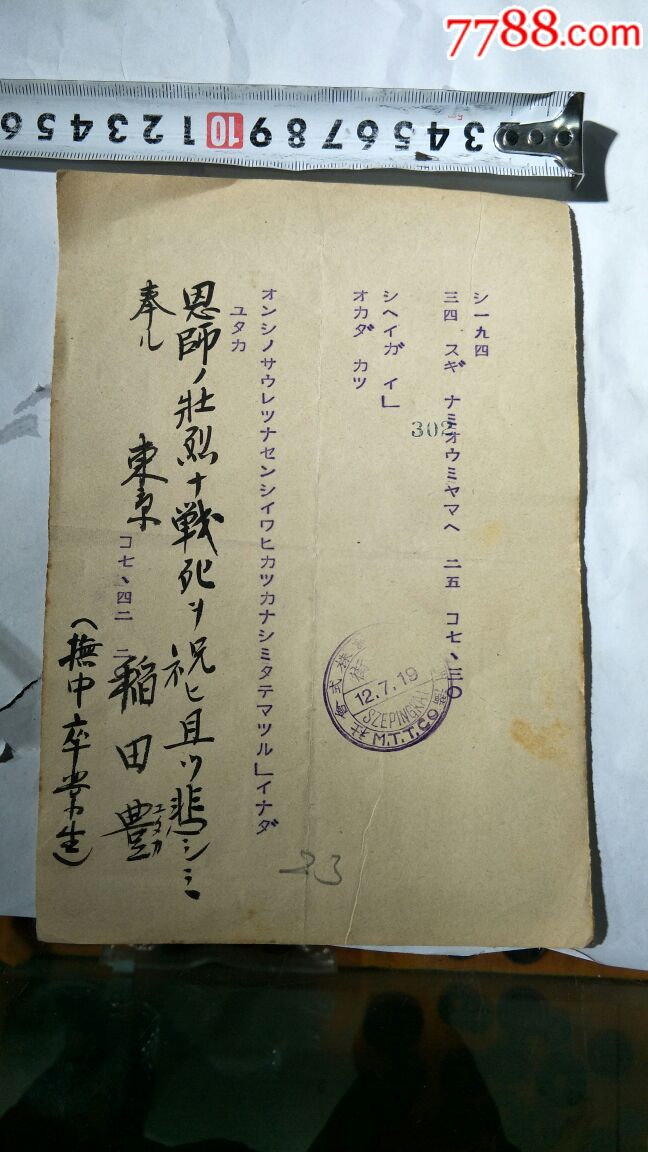 7788.com
3 4 5 6 7 8 9 10 1 2 3 4 5 6
シ一九四
三四 スギ ナミオウミヤマヘ 二五 コ七、三〇
302
シヘイガイ」
オカダ カツ
12.7.19
SZEPINGKAI
M.T.T.Co
株式會社
オンシノサウレツナセンシイワヒカツカナシミタテマツル」イナダ
ユタカ
恩師ノ壯烈ナ戦死ヲ祝ヒ且ツ悲シミ
奉ル
東京
コ七、四二
稲田豊
ユタカ
(撫中卒業生)
23